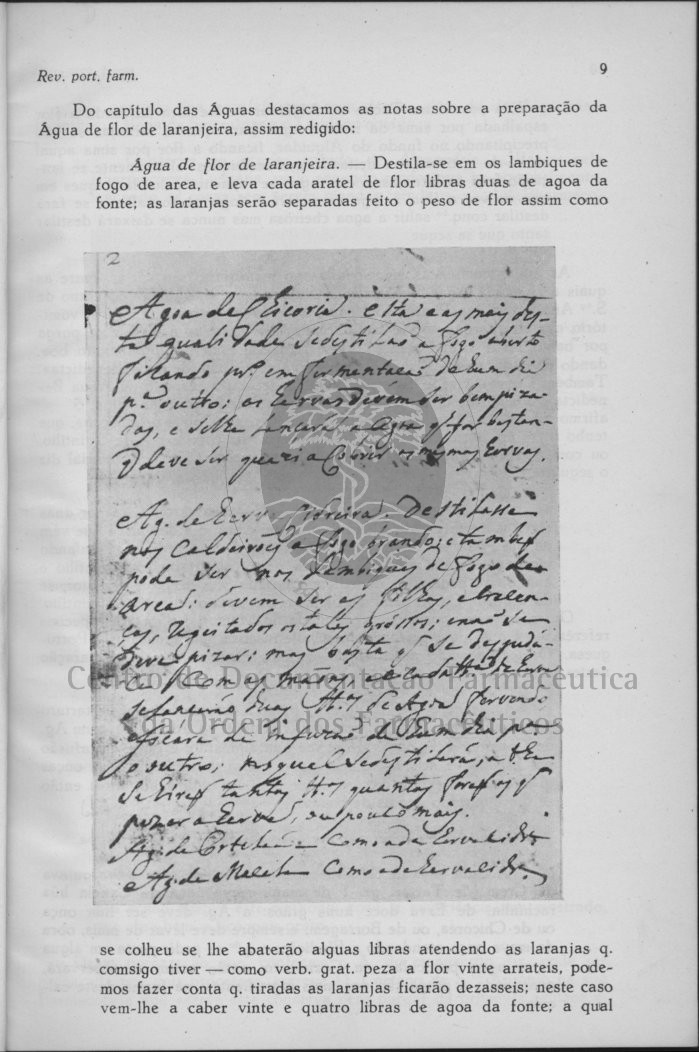 Rev. port. farm.
9
Do capítulo das Águas destacamos as notas sobre a preparação da
Água de flor de laranjeira, assim redigido:
Água de flor de laranjeira. — Destila-se em os lambiques de
fogo de area, e leva cada aratel de flor libras duas de agoa da
fonte; as laranjas serão separadas feito o peso de flor assim como
2
Agoa de Chicoria. Esta e as mais des-
ta qualidade se destilaõ a fogo aberto
ficando pr.º em fermentacaõ de hum dia
p.ª outro: as hervas devem ser bem piza-
das, e se lhe lancará a agoa q̃ for bastan-
deve ser quazi a Cobrir as mesmas hervas.
Ag. de herva Cidreira. Destilasse
nos Caldeiroẽs a fogo brando; e tambem
pode ser nos Lambiques de fogo de
area: devem ser as folhas, e
os talos grossos; e naõ se
deve pizar; mas basta q̃ se
com as maõs, e cada de herva
duas de Agoa fervendo
de infuzaõ de hum dia p.ª
o outro; no qual se destilará, e
se tantas quantas q̃
pezar a herva, ou pouco mais.
Ag. de Ortelãa como a da herva cidr.ª
Ag. de Macela como a da herva cidr.ª
Centro de Documentação Farmacêutica
da Ordem dos Farmacêuticos
se colheu se lhe abaterão alguas libras atendendo as laranjas q.
comsigo tiver — como verb. grat. peza a flor vinte arrateis, pode-
mos fazer conta q. tiradas as laranjas ficarão dezasseis; neste caso
vem-lhe a caber vinte e quatro libras de agoa da fonte; a qual